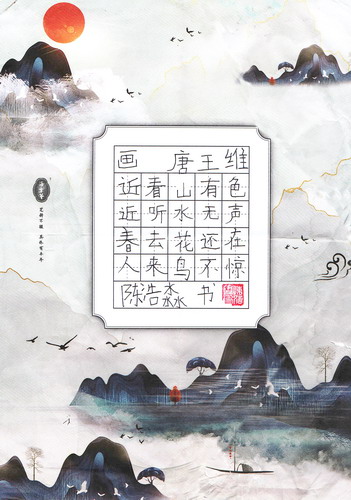 画 唐王维
近看山有色
近听水无声
春去花还在
人来鸟不惊
陈浩淼 书